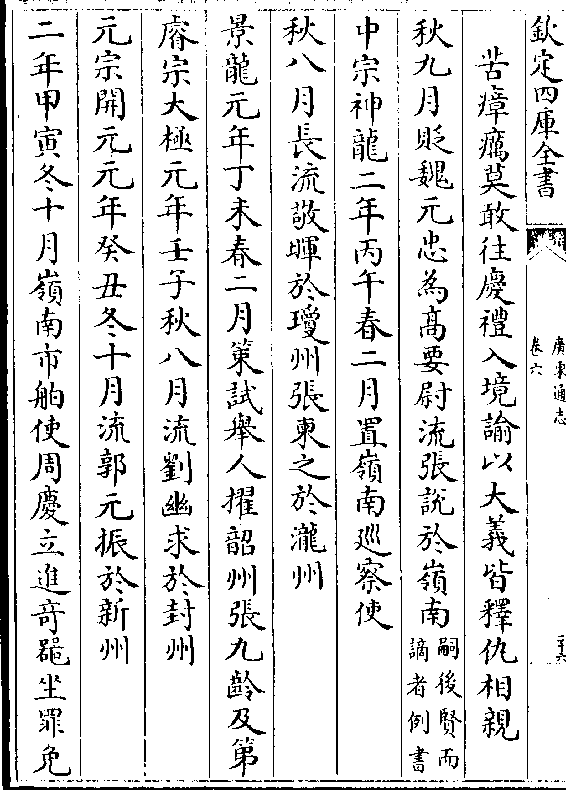 欽定四庫全書
廣東通志
卷六
苦瘴癘莫敢往慶禮入境諭以大義皆釋仇相親
秋九月貶魏元忠為高要尉流張說於嶺南嗣後賢而
謫者例書
中宗神龍二年丙午春二月置嶺南廵察使
秋八月長流敬暉於瓊州張柬之於瀧州
景龍元年丁未春二月策試舉人擢韶州張九齡及第
睿宗大極元年壬子秋八月流劉幽求於封州
元宗開元元年癸丑冬十月流郭元振於新州
二年甲寅冬十月嶺南市舶使周慶立進竒噐坐罪免